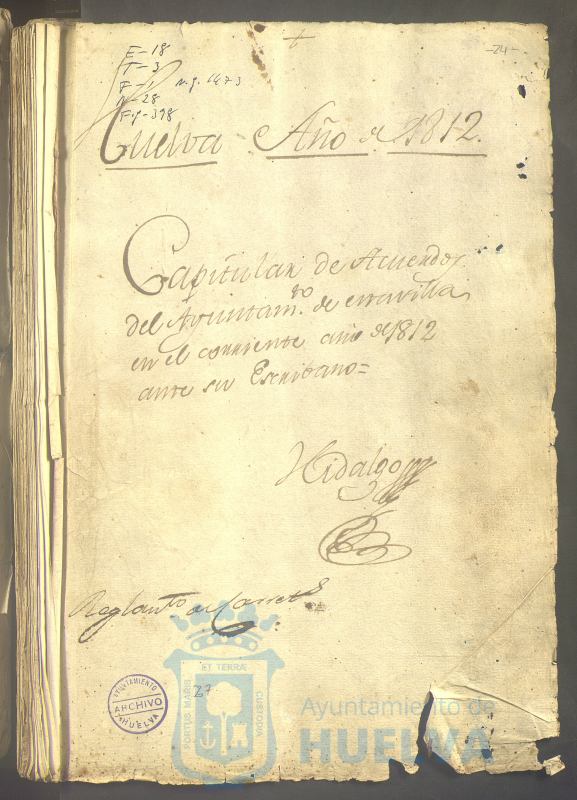 -24-
E-18
T-3
n.g. 1473
N-28
F.g-398
Huelva Año de 1812.
Capitular de Acuerdos
del Ayuntam.to de esta villa
en el corriente año de 1812
ante su Escribano=
Hidalgo
Reglamto de
27
AYUNTAMIENTO
ARCHIVO
HUELVA
ET TERRÆ
PORTUS MARIS
CUSTODIA
Ayuntamiento de
HUELVA